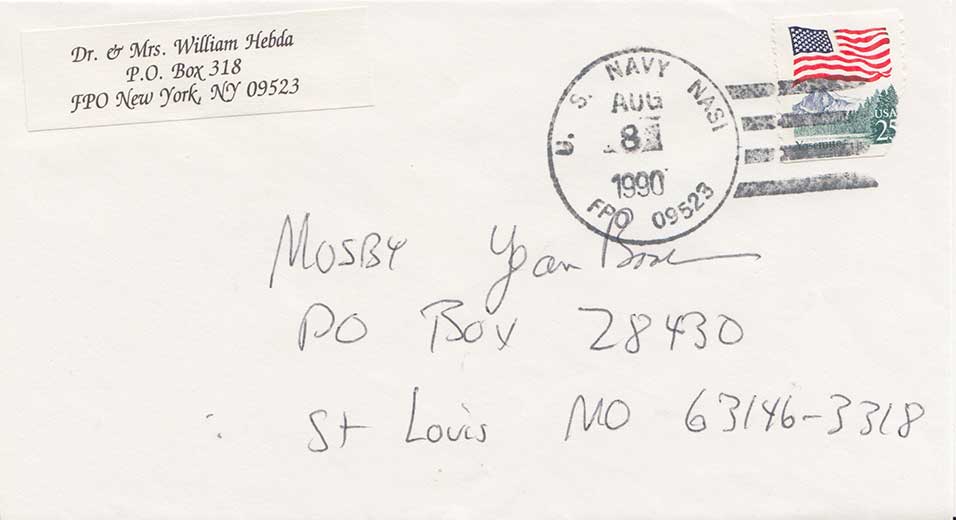 Dr. & Mrs. William Hebda
P.O. Box 318
FPO New York, NY 09523
U. S. NAVY NASI
AUG
8
1990
FPO 09523
USA
25
Yosemite
MOSBY Year Book
PO Box 28430
St Louis MO 63146-3318